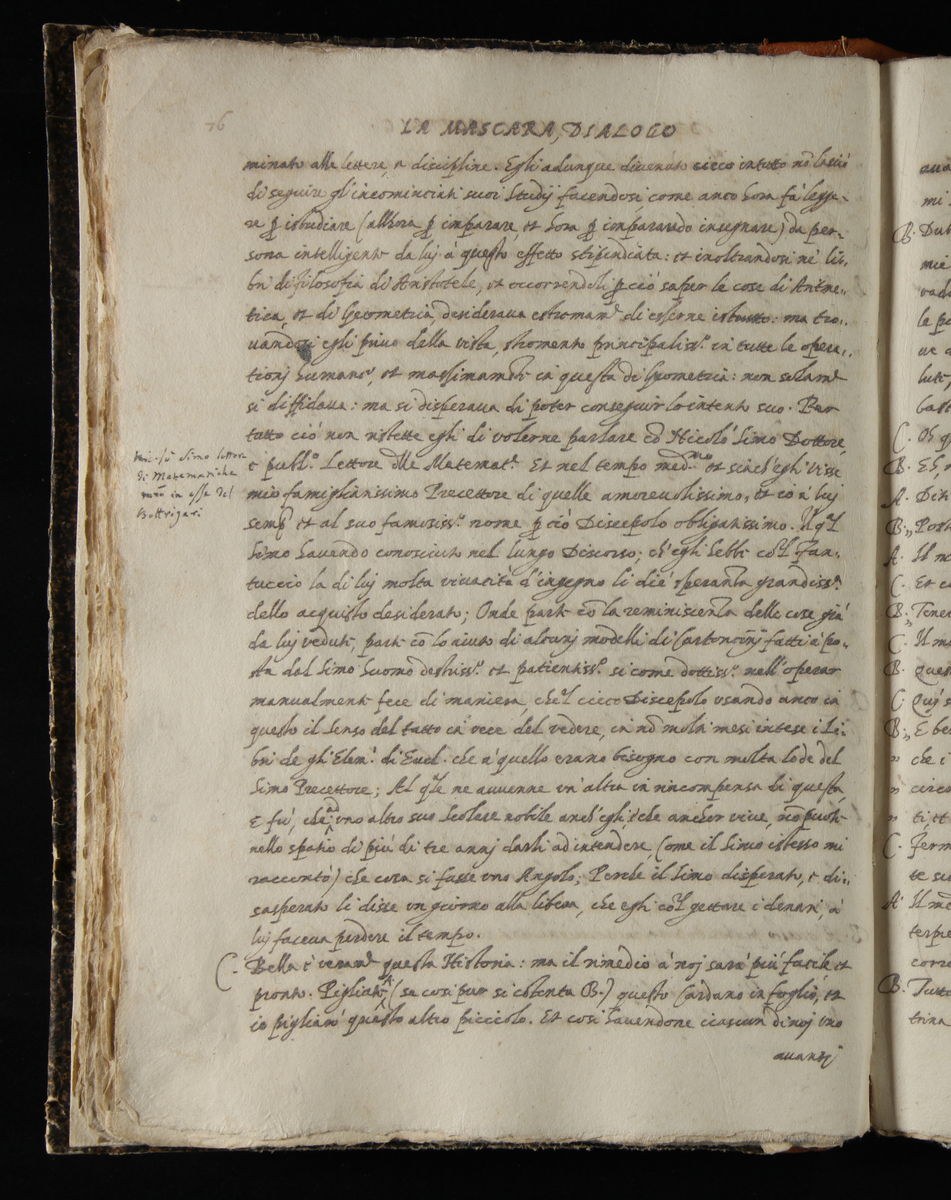 76
LA MASCARA, DIALOGO
minato alle lettere, e discipline. Egli adunque divenuto cieco in tutto nõ lasciò
di seguire gl'incominciati suoi Studij facendosi come anco hora fà legge-
re ꝑ istudiare (all'hora ꝑ imparare, et hora ꝑ imparando insegnare) da per-
sona intelligente da luj à questo effetto stipendiata: et inoltrandosi né li-
bri di filosofia di Aristotele, et occorrendoli ꝑ ciò saper le cose di Aritme-
tica, et di Geometria desiderava estremamᵗᵉ di esserne istrutto: ma tro-
vandosi egli privo della vista, stromento principalissᵒ. in tutte le opera-
tionj humane, et massimamente in questa di Geometria: non solamᵗᵉ
si diffidava: ma si disperava di poter conseguir lo intento suo. Pur
tutto ciò non ristette egli di volerne parlare cõ Nicolò Simo Dottore,
e publᵒ. Lettore delle Matematᵉ. Et nel tempo medᵐᵒ et sinch'egli visse
mio famigliarissimo Precettore di quelle amorevolissimo, et io à luj
sempʳ et al suo famosissᵒ. nome ꝑ ciò Discepolo obligatissimo. Il qᵃˡ
Simo havendo conosciuto nel lungo Discorso, ch'egli hebbe cõ'l fan-
tuccio la di luj molta vivacità d'ingegno li diè speranza grandissᵃ.
dello acquisto desiderato; Onde parte cõ la reminiscenza delle cose già
da luj vedute, parte cõ lo aiuto di alcunj modelli di Cartoncinj fatti à po-
sta dal Simo huomo destrissᵒ. et patientissᵒ. si come dottissᵒ. nell'operar
manualmente fece di maniera, che'l cieco Discepolo usando anco in
questo il senso del tatto in vece del vedere, in nõ molti mesi intese i Li-
bri de gli Elemᵗⁱ. di Eucl. che à quello erano bisogno con molta lode del
Simo Precettore; Al qᵃˡe ne avvenne un'altra in rincompensa di questa,
E fù, che ad uno altro suo Scolare nobile anch'egli, e che ancor vive, nõ puote
nello spatio di più di tre annj darli ad intendere, (ome il Simo istesso mi
raccontò) che cosa si fusse uno Angolo; Perche il Simo disperato, e di-
sasperato li disse un giorno alla libera, che egli cõ'l gettare i denari, à
luj faceva perdere il tempo.
C. Bella è veramᵗᵉ questa Historia: ma il rimedio à noj sarà più facile et
pronto. Pigliate (se cosi pur si cotenta B.) questo Cardano in foglio, et
io pigliarò questo altro picciolo. Et cosi havendone ciascun di noj uno
avantj
Simo lettore
di Matematiche
in esse del
Bottrigari
B. Dub
mie
C. Oh q
A. Dit
A. Il m
C. Et c
B. Tene
C. Il m
B. Ques
B. E be
che i
circo
ti, et
C. ferm
te su
terpre
corre
B. Tutto
trina